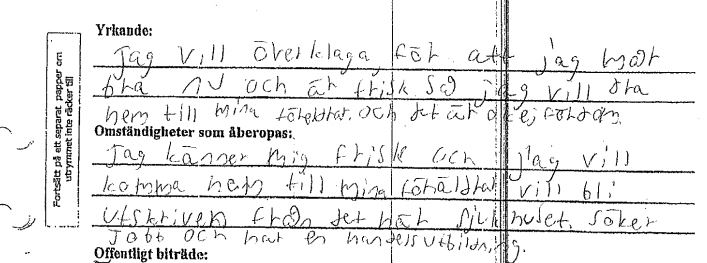 Yrkande:
jag vill överklaga, för att jag mår
bra nu och är frisk så jag vill dra
hem till mina föräldrar. och det är okej för dom.
Omständigheter som åberopas:
jag känner mig frisk och jag vill
komma hem till mina föräldrar vill bli
utskriven från det här sjukhuset. söker
jobb och har en handelsutbildning.
Offentligt biträde:
Fortsätt på ett separat papper om
utrymmet inte räcker till